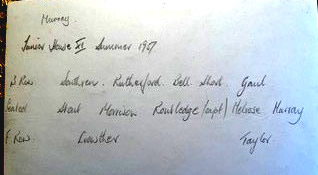 Murray.
Junior House XI Summer 1957.
B Row Southren. Rutherford. Bell Short. Gaul
Seated Stout Morrison Routledge (capt) Melrose Murray
F Row Crowther Taylor